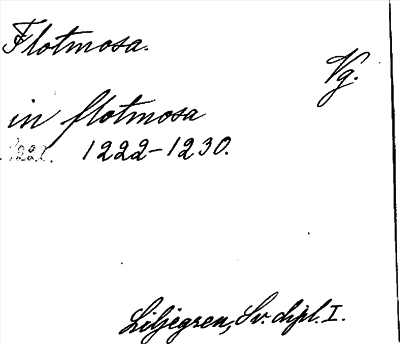 Flotmosa.
Vg.
in flotmosa
1222-1230.
Liljegren, Sv. dipl. I.